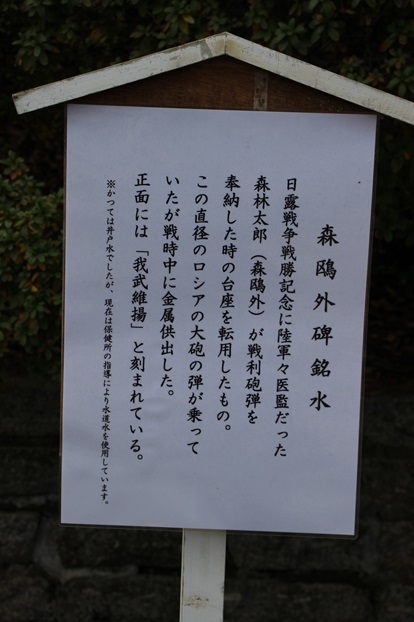 森鴎外碑銘水
日露戦争戦勝記念に陸軍々医監だった
森林太郎（森鴎外）が戦利砲弾を
奉納した時の台座を転用したもの。
この直径のロシアの大砲の弾が乗って
いたが戦時中に金属供出した。
正面には「我武維揚」と刻まれている。
※かつては井戸水でしたが、現在は保健所の指導により水道水を使用しています。